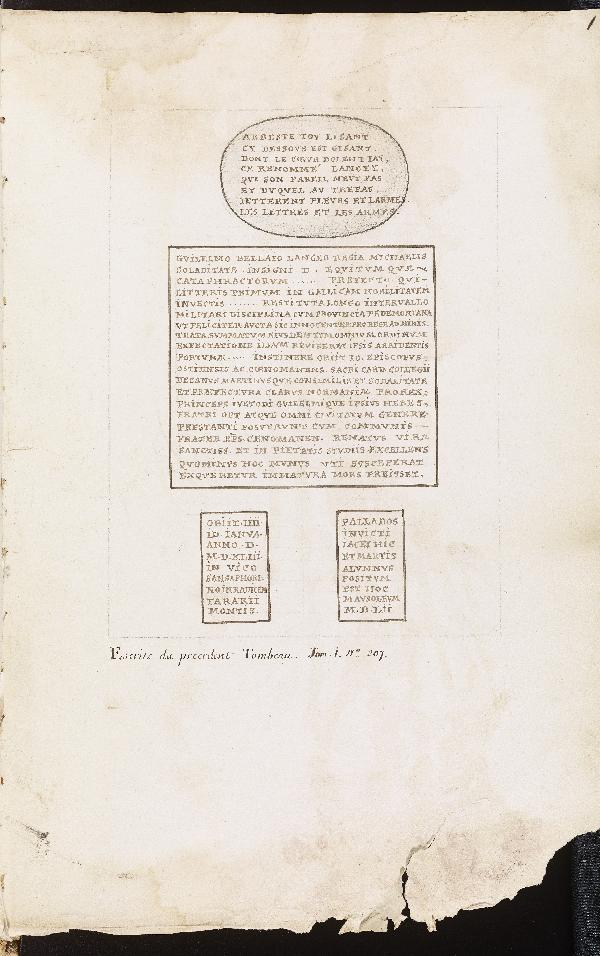 1
ARRESTE TOY LISANT
CY DESSOVS EST GISANT,
DONT LE CŒVR DOLENT IAY,
CE RENOMMÉ LANGEY,
QVI SON PAREIL NEVT PAS
ET DVQVEL AV TREPAS
IETTERENT PLEVRS ET LARMES
LES LETTRES ET LES ARMES.
GVILELMO BELLAIO LANGEO REGIA MICHAELIS
SOLADITATE INSIGNI D. EQVITVM QVE
CATAPHRACTORVM ...... PREFECTO QVI
LITTERIS PRIMVM IN GALLICAM NOBILITATEM
INVECTIS ....... RESTITVTA LONGO INTERVALLO
MILITARI DISCIPLINA CVM PROVINCIA PEDEMONTANA
VT FELICITER AVCTA SIC INNOCENTER PROREGE ADMINIS
TRATA SVMMATVM EIVSDEM TVM OMNIVM ORDINVM
EXPECTATIONE ILLVM RIVIEREM IPSIS ARRIDENTIS
FORTVNÆ .... INSTINERE OBIIT IO. EPISCOPVS
OSTIENSIS AC CŒNOMANENS. SACRI CARD. COLLEGII
DECANVS MARTINVSQVE CONSIMILIS ET SODALITATE
ET PRÆFECTVRA CLARVS NORMANIÆ PROREX
PRINCEPS IVETODI GVILELMI QVE IPSIVS HERES,
FRATRI OPT ATQVE OMNI CIVITATVM GENERE
PRESTANTI POSVERVNT CVM COMMVNIS
FRATER EPS. CENOMANEN. RENATVS VIR
SANCTISS. ET IN PIETATIS STVDIIS EXCELLENS
QVOMINVS HOC MVNVS VTI SVSCEPERAT
EXQVERETVR IMMATVRA MORS FECISSET.
OBIIT IIII
ID. IANVA
ANNO D
M.D.XLIII
IN VICO
SANSAPHORI
NO IN RADICEM
TARARII
MONTIS.
PALLADOS
INVICTI
IACET HIC
ET MARTIS
ALVMNVS
POSITVM
EST HOC
MAVSOLEVM
M.D.LII
Escrits du precedent Tombeau. Tom. 1. N° 207.